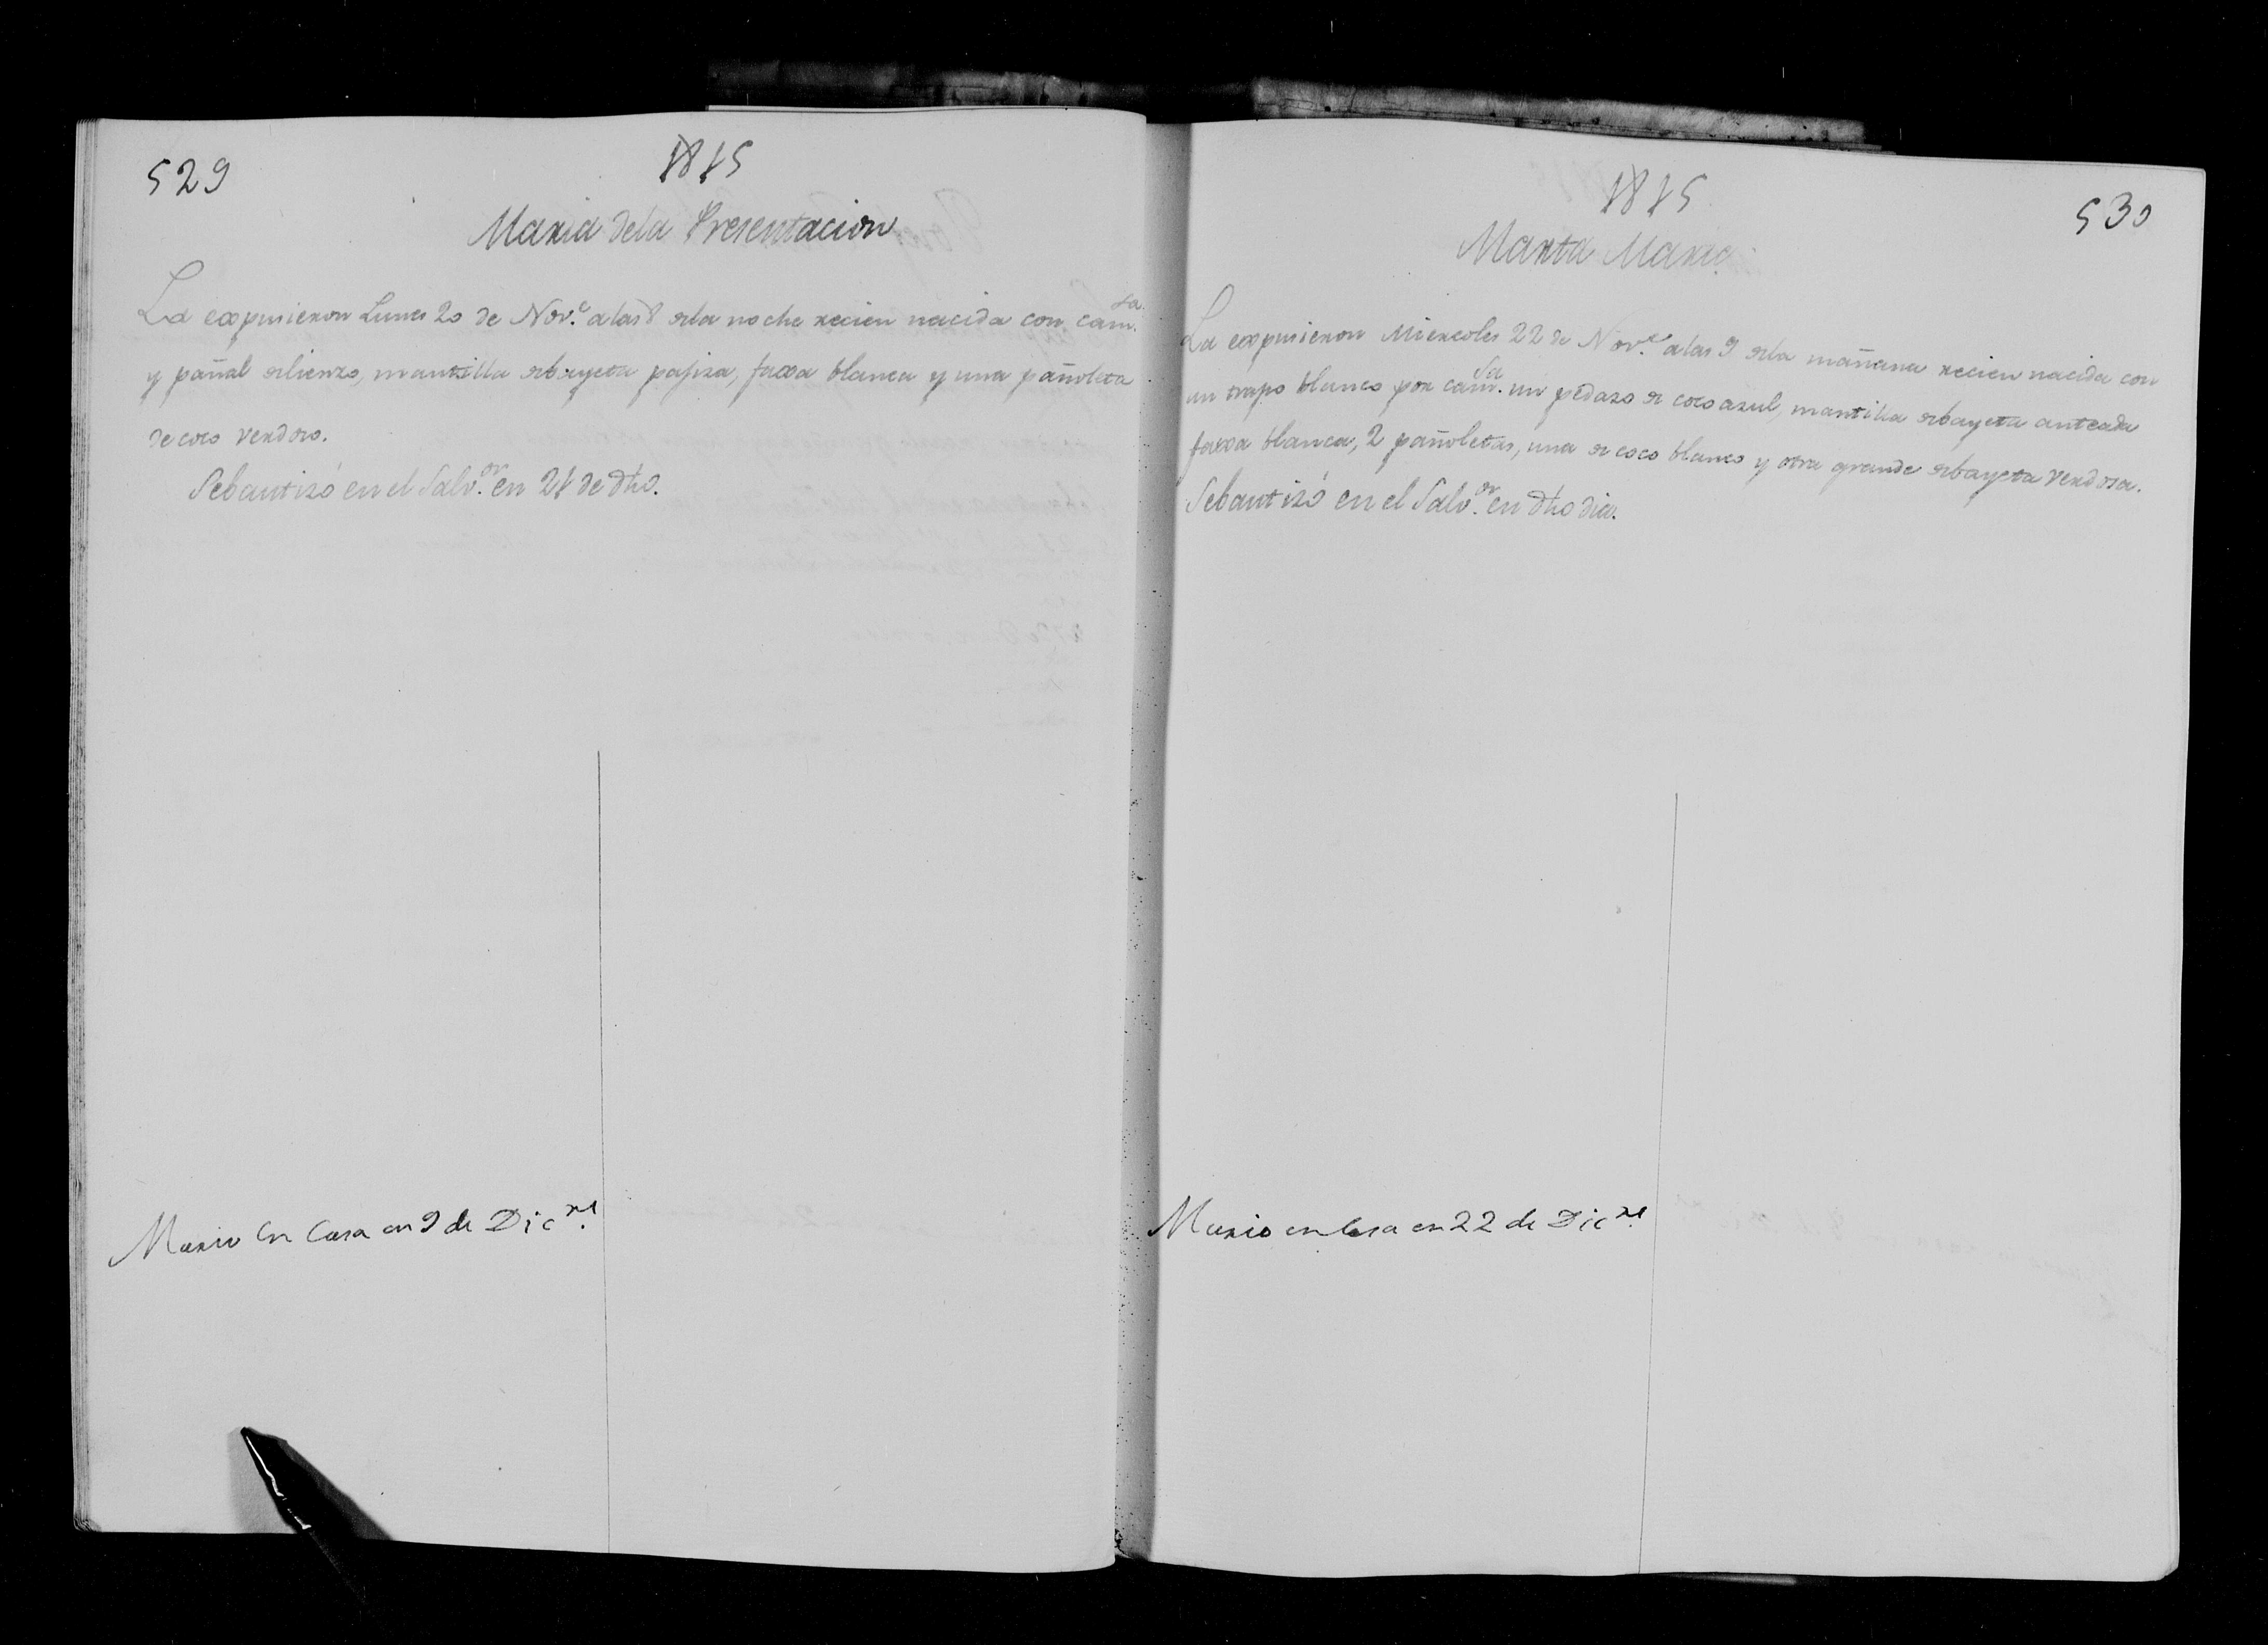 529
1815
Maria dela Presentacion
La expusieron Lunes 20 de Nov.e a las 8 dela noche recien nacida con cam.sa
y pañal de lienzo, mantilla de bayeta pajiza, faxa blanca y una pañoleta
de coco verdoso.
Se bautizó en el Salv.or en 21 de dho.
Murio en Casa en 9 de Dic.re
1815
530
Marta Maria
La expusieron Miercoles 22 de Nov.e a las 9 dela mañana recien nacida con
un trapo blanco por cam.sa un pedazo de coco azul, mantilla de bayeta anteada
faxa blanca, 2 pañoletas, una de coco blanco y otra grande de bayeta verdosa.
Se bautizó en el Salv.or en dho dia.
Murio en Casa en 22 de Dic.re